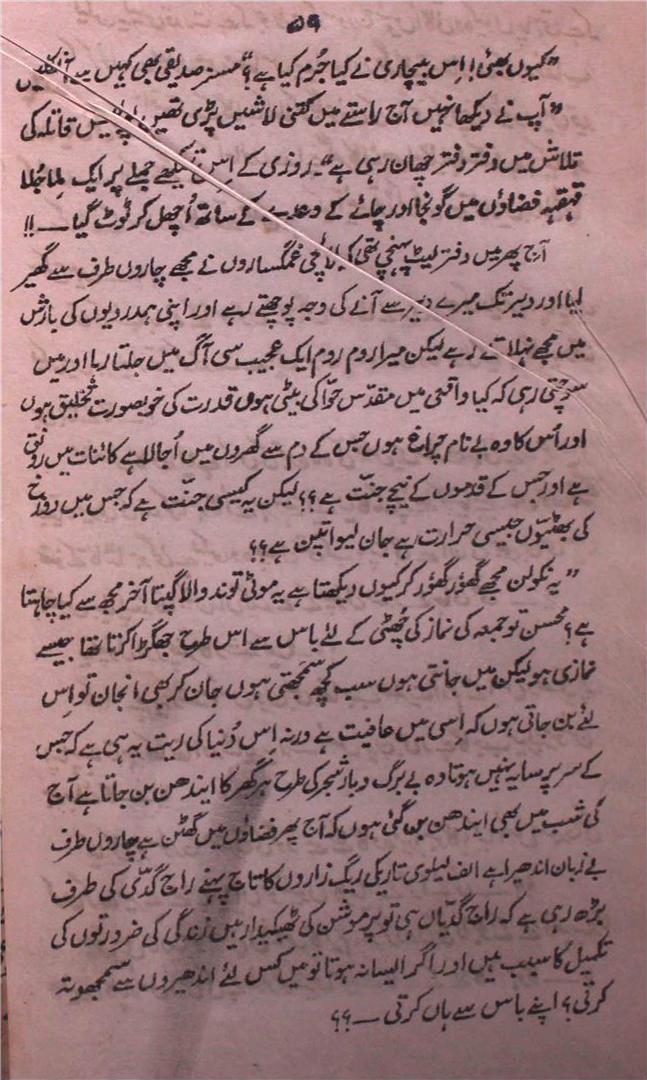 ۵۹
”کیوں بھئی! اِس بیچاری نے کیا جُرم کیا ہے؟“ مسز صدیقی بھی کہیں سے
”آپ نے دیکھا نہیں آج راستے میں کتنی لاشیں پڑی تھیں پولیس قاتلہ کی
تلاش میں دفتر دفتر چھان رہی ہے“۔ روزی کے اِس تیکھے جملے پر ایک مِلا جُلا
قہقہہ فضاؤں میں گونجا اور چائے کے وعدے کے ساتھ اُچھل کر ٹوٹ گیا ــ !!
آج پھر میں دفتر لیٹ پہنچی تھی کہ لالچی غمگساروں نے مجھے چاروں طرف سے گھیر
لیا اور دیر تک میرے دیر سے آنے کی وجہ پوچھتے رہے اور اپنی ہمدردیوں کی بارش
میں مجھے نہلاتے رہے لیکن میرا روم روم ایک عجیب سی آگ میں جلتا رہا اور میں
سوچتی رہی کہ کیا واقعی میں مقدّس حوّا کی بیٹی ہوں قدرت کی خوبصورت تخلیق ہوں
اور اُس کا وہ بے نام چراغ ہوں جس کے دم سے گھروں میں اُجالا ہے کائنات میں رونق
ہے اور جس کے قدموں کے نیچے جنّت ہے؟؟ لیکن یہ کیسی جنّت ہے کہ جس میں دوزخ
کی بھٹیوں جیسی حرارت ہے جان لیوا تپن ہے؟؟
”یہ نکولن مجھے گھُور گھُور کر کیوں دیکھتا ہے یہ موٹی توند والا گپتا آخر مجھ سے کیا چاہتا
ہے؟ محسن تو جمعہ کی نماز کی چُھٹی کے لئے باس سے اس طرح جھگڑا کرتا تھا جیسے
نمازی ہو لیکن میں جانتی ہوں سب کچھ سمجھتی ہوں جان کر بھی انجان تو اِس
لئے بن جاتی ہوں کہ اِسی میں عافیت ہے ورنہ اِس دُنیا کی ریت یہ ہی ہے کہ جس
کے سر پر سایہ نہیں ہوتا وہ بے برگ و بار شجر کی طرح ہر گھر کا ایندھن بن جاتا ہے آج
کی شب میں بھی ایندھن بن گئی ہوں کہ آج پھر فضاؤں میں گھٹن ہے چاروں طرف
بے زبان اندھیرا ہے الف لیلوی تاریکی ریگ زاروں کا تاج پہنے راج گدّی کی طرف
بڑھ رہی ہے کہ راج گدّیاں ہی تو پرموشن کی ٹھیکیدار ہیں زندگی کی ضرورتوں کی
تکمیل کا سبب ہیں اور اگر ایسا نہ ہوتا تو میں کس لئے اندھیروں سے سمجھوتہ
کرتی؟ اپنے باس سے ہاں کرتی ــ ؟؟